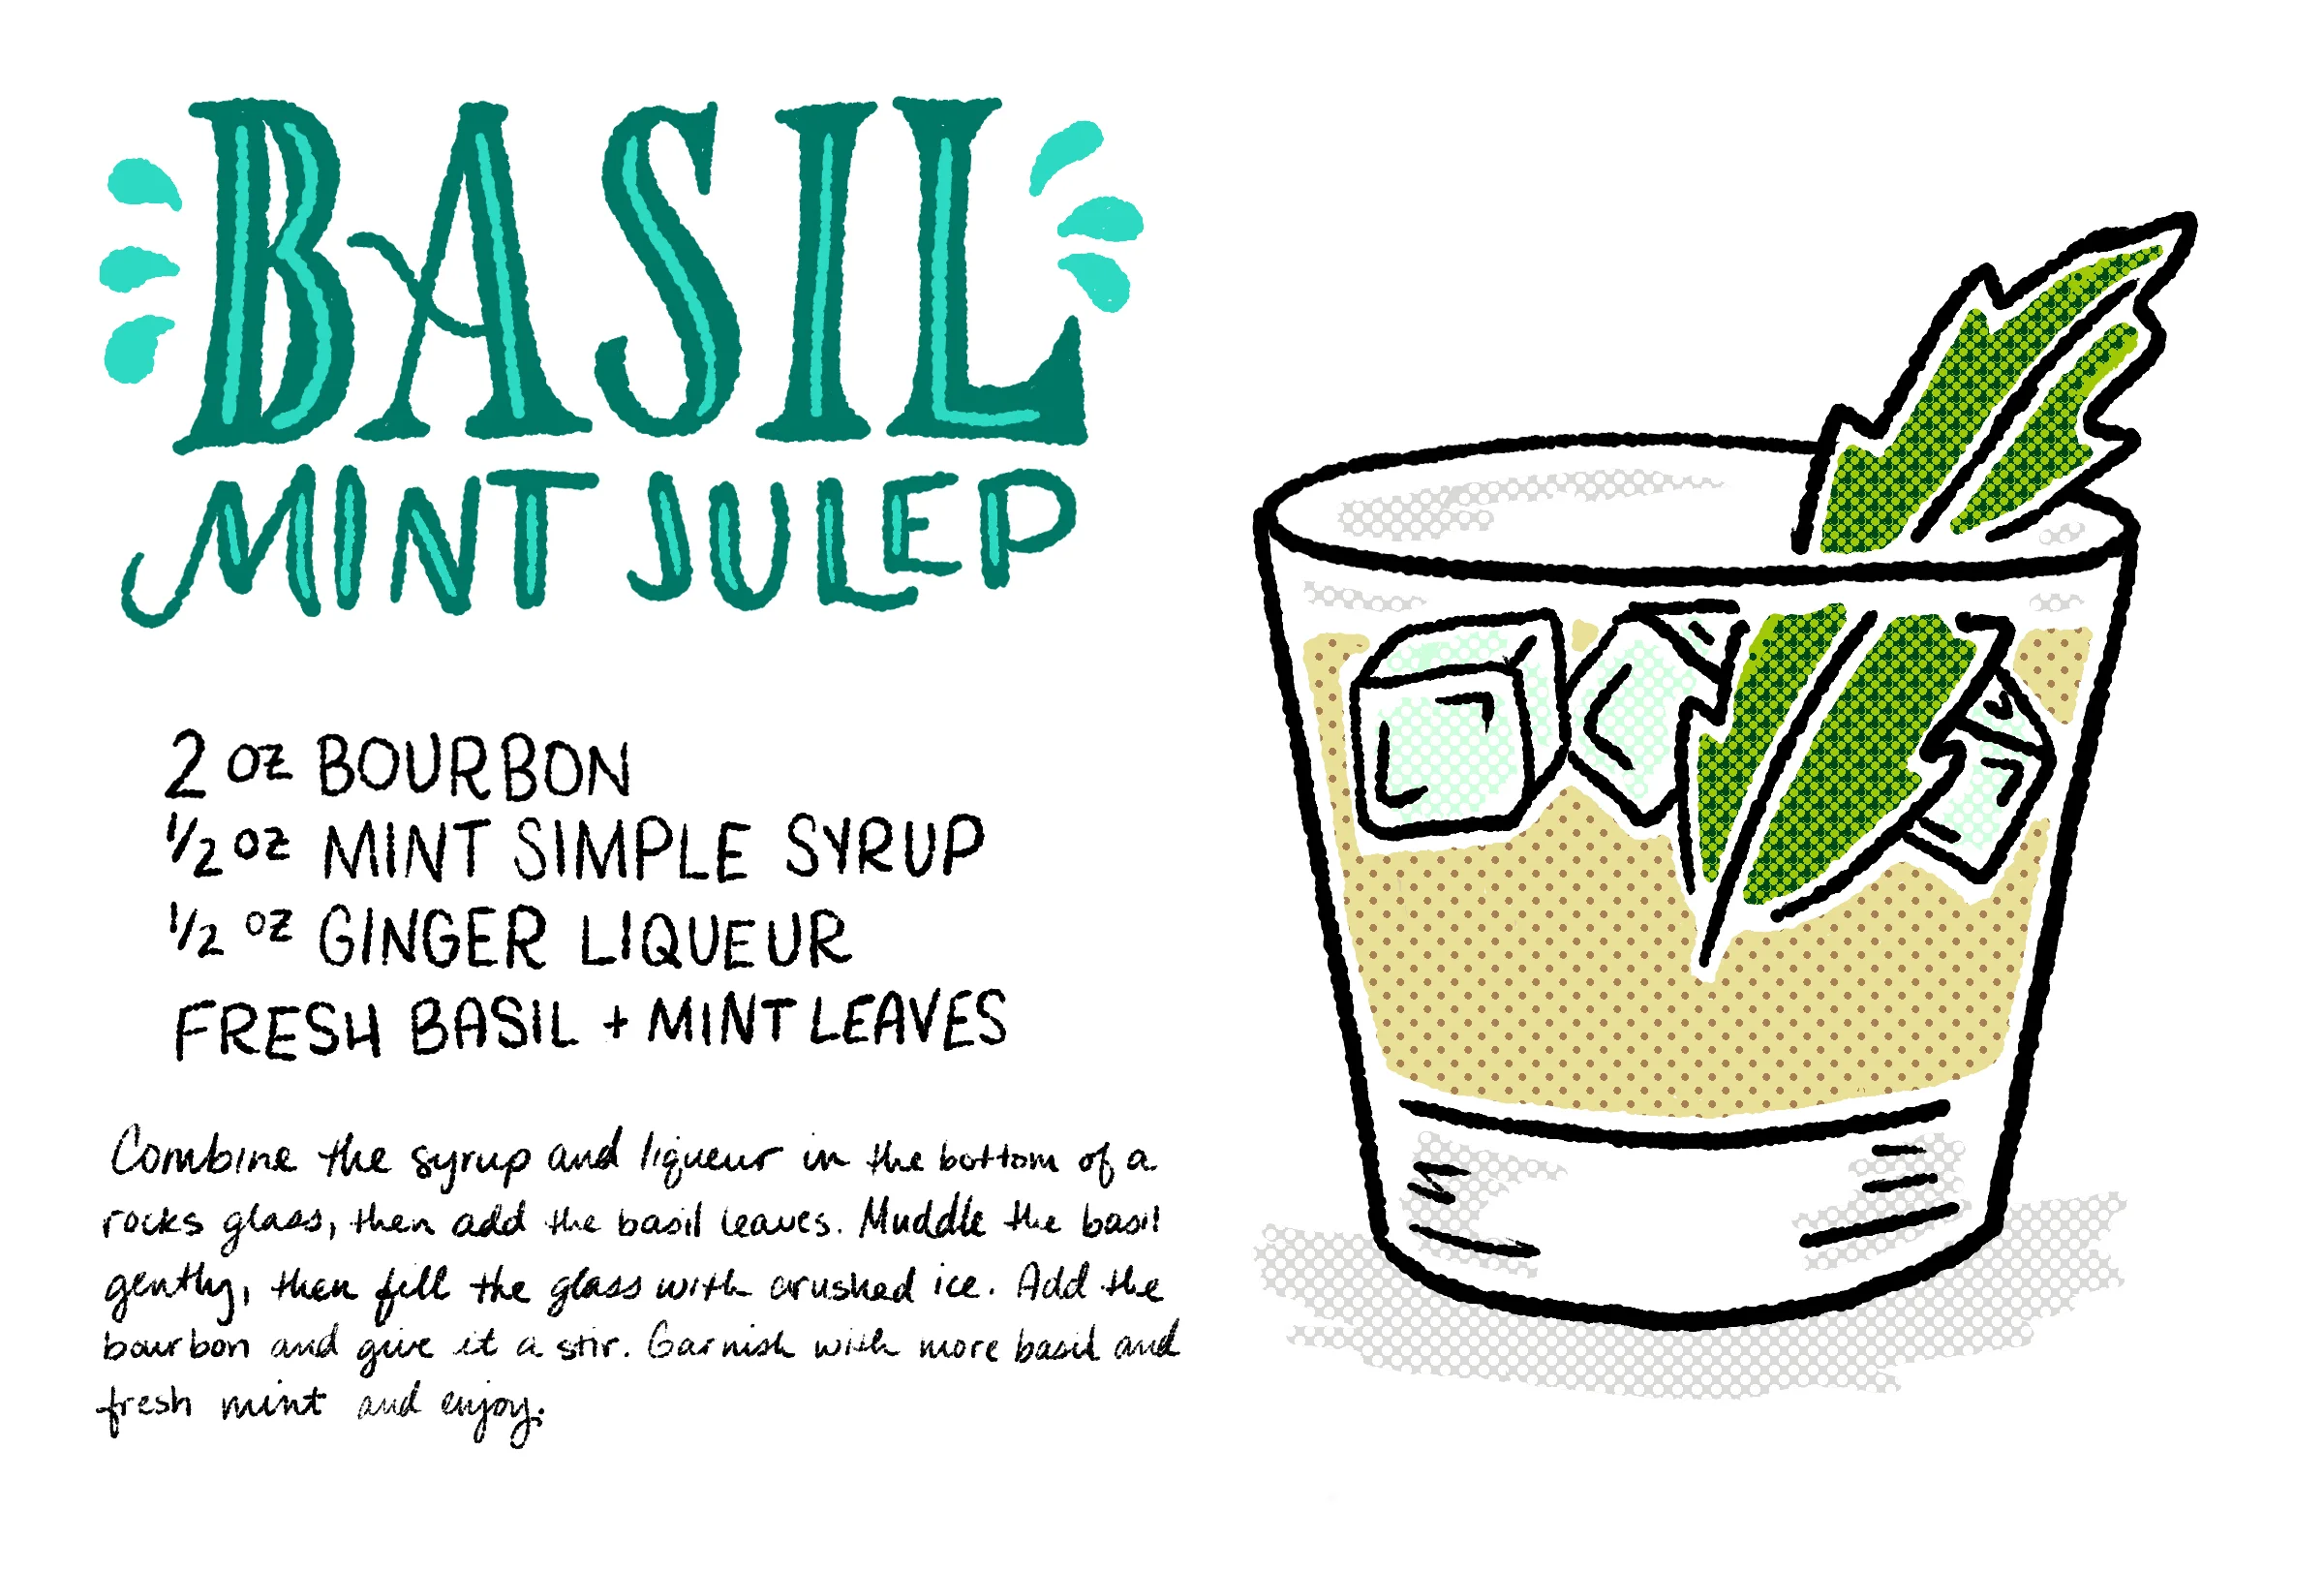 BASIL
MINT JULEP
2 oz BOURBON
1/2 oz MINT SIMPLE SYRUP
1/2 oz GINGER LIQUEUR
FRESH BASIL + MINT LEAVES
Combine the syrup and liqueur in the bottom of a
rocks glass, then add the basil leaves. Muddle the basil
gently, then fill the glass with crushed ice. Add the
bourbon and give it a stir. Garnish with more basil and
fresh mint and enjoy.